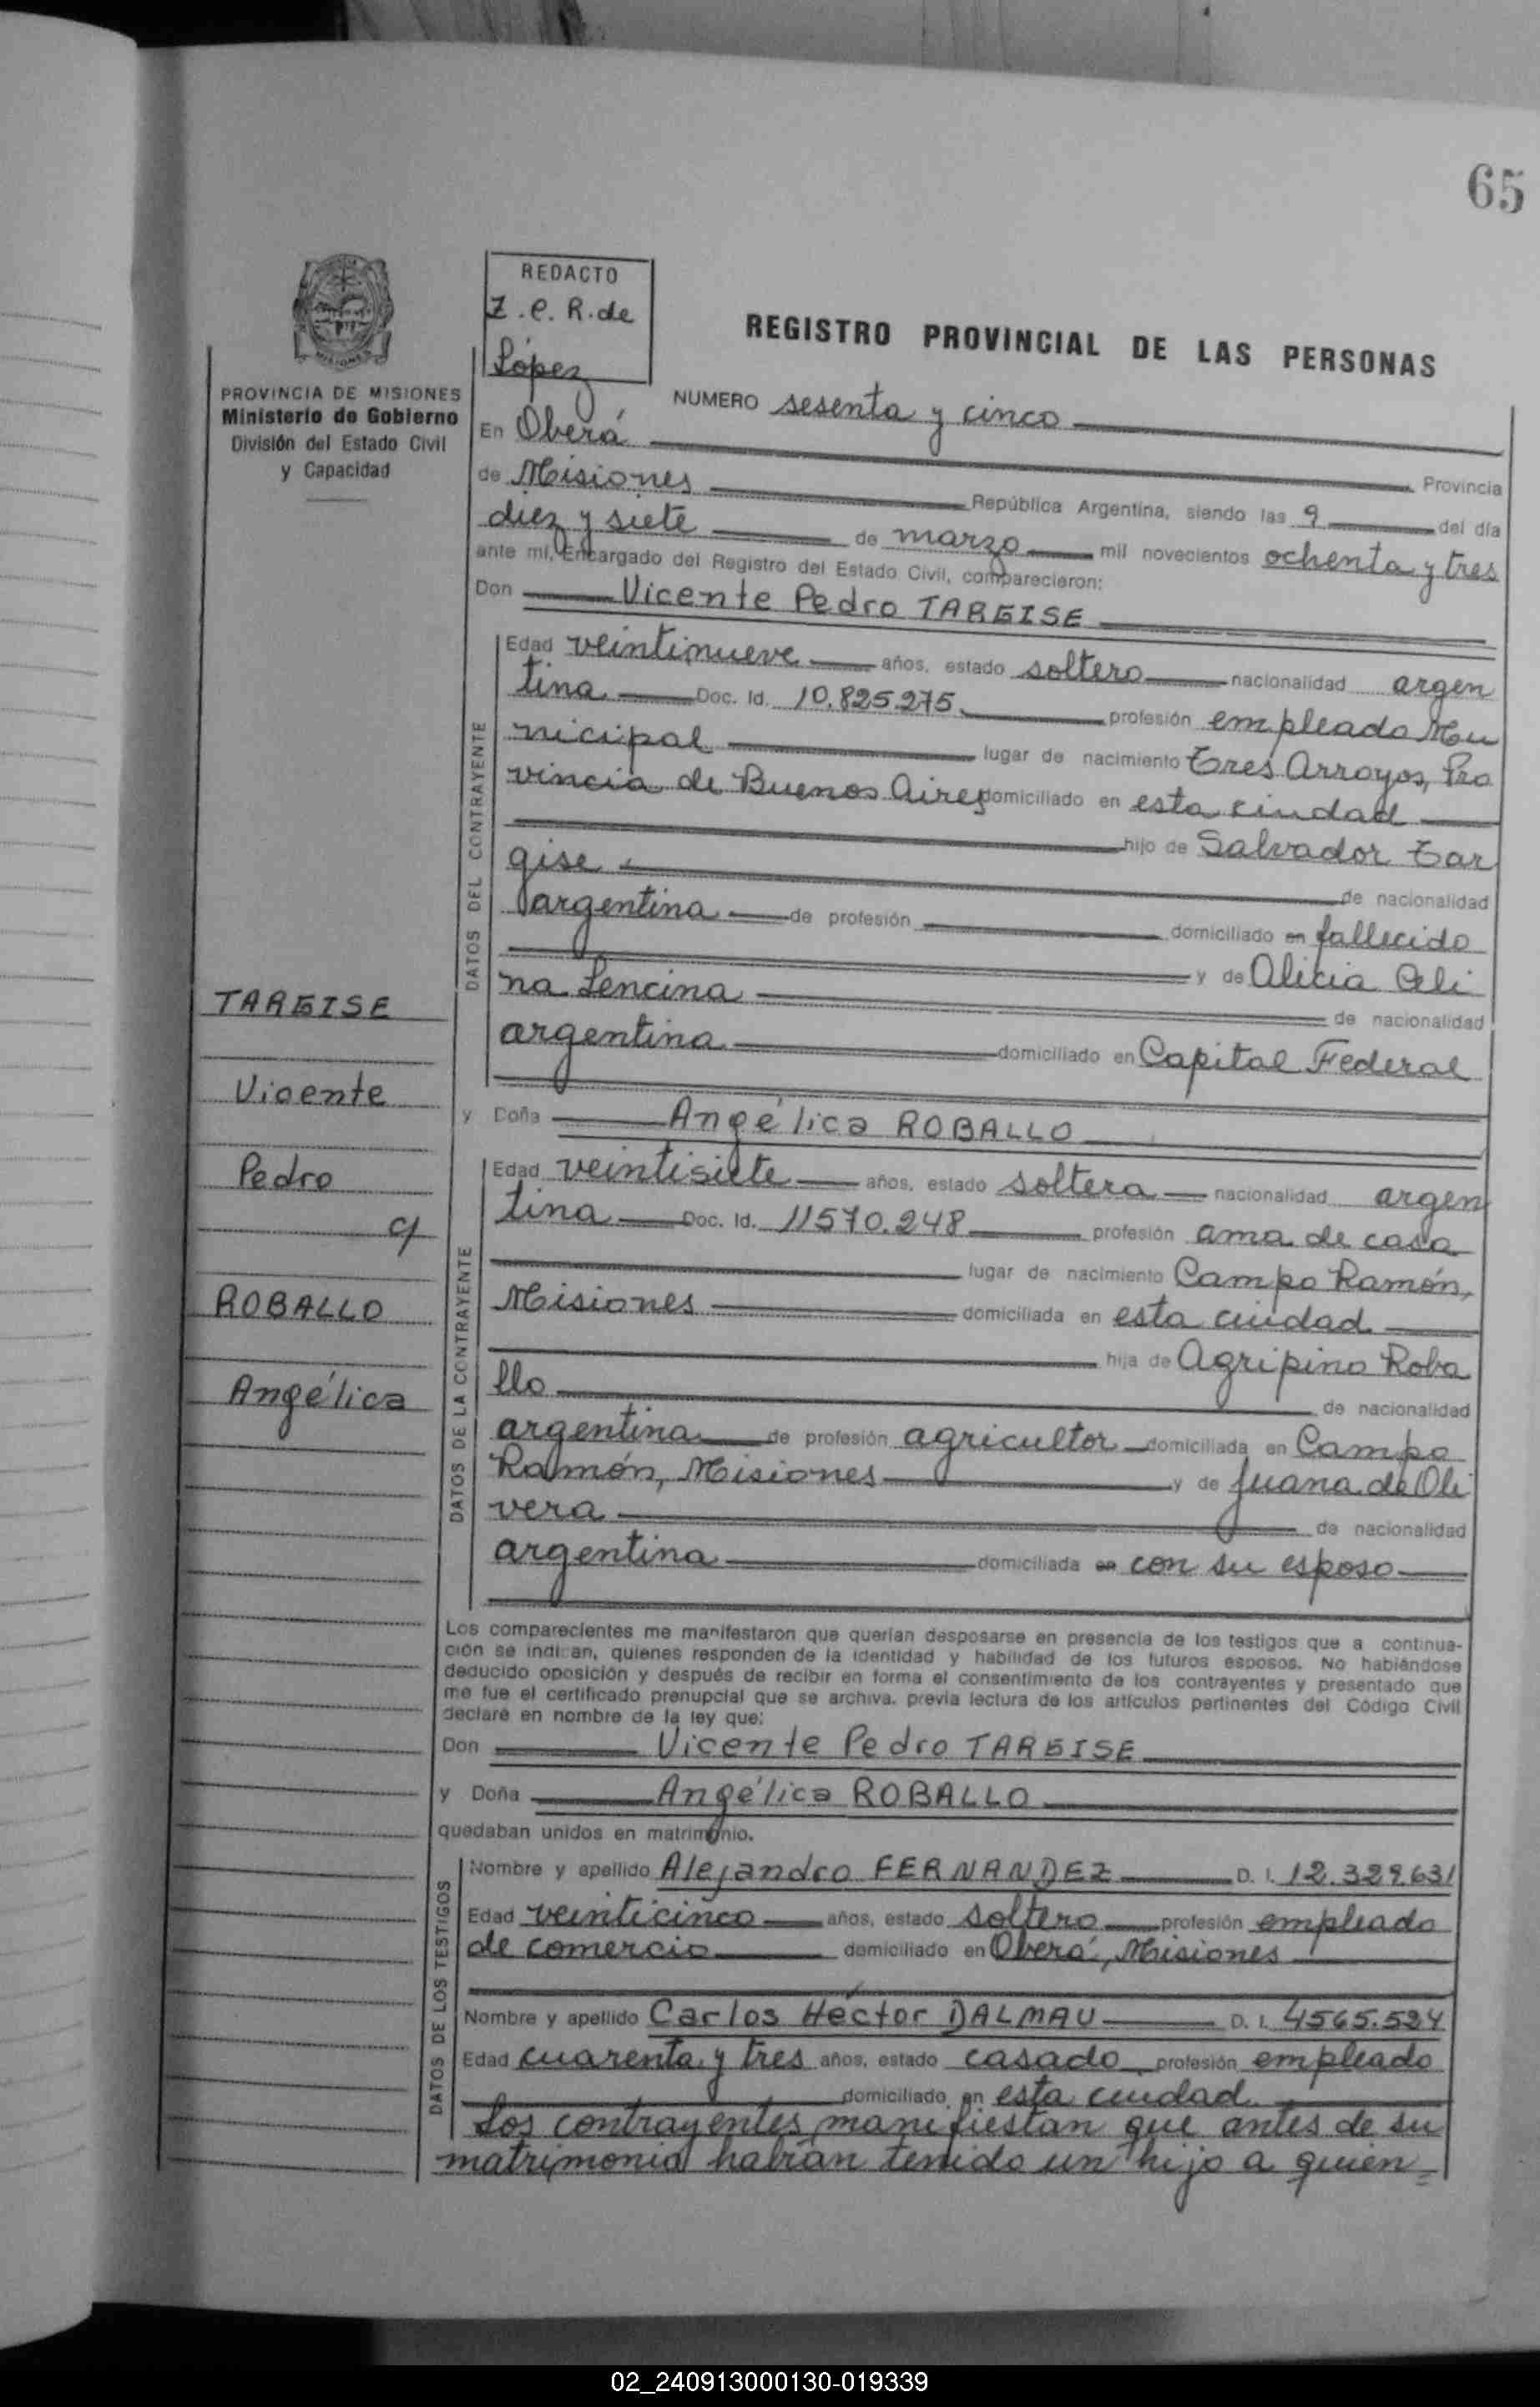 65
REDACTO
Z. C. R. de
López
REGISTRO PROVINCIAL DE LAS PERSONAS
PROVINCIA DE MISIONES
Ministerio de Gobierno
División del Estado Civil
y Capacidad
NUMERO sesenta y cinco
En Oberá Provincia
de Misiones República Argentina, siendo las 9 del día
diez y siete de marzo mil novecientos ochenta y tres
ante mí, Encargado del Registro del Estado Civil, comparecieron:
Don Vicente Pedro TARGISE
DATOS DEL CONTRAYENTE
Edad veintinueve años, estado soltero nacionalidad argen
tina Doc. Id. 10.825.275 profesión empleado Mu
nicipal lugar de nacimiento Tres Arroyos, Pro
vincia de Buenos Aires domiciliado en esta ciudad
hijo de Salvador Tar
gise de nacionalidad
argentina de profesión domiciliado en fallecido
y de Alicia Celi
na Lencina de nacionalidad
argentina domiciliado en Capital Federal
y Doña Angélica ROBALLO
DATOS DE LA CONTRAYENTE
Edad veintisiete años, estado soltera nacionalidad argen
tina Doc. Id. 11570.248 profesión ama de casa
lugar de nacimiento Campo Ramón,
Misiones domiciliada en esta ciudad
hija de Agripino Roba
llo de nacionalidad
argentina de profesión agricultor domiciliada en Campo
Ramón, Misiones y de Juana de Oli
vera de nacionalidad
argentina domiciliada en con su esposo
TARGISE
Vicente
Pedro
c/
ROBALLO
Angélica
Los comparecientes me manifestaron que querían desposarse en presencia de los testigos que a continua-
ción se indican, quienes responden de la identidad y habilidad de los futuros esposos. No habiéndose
deducido oposición y después de recibir en forma el consentimiento de los contrayentes y presentado que
me fue el certificado prenupcial que se archiva, previa lectura de los artículos pertinentes del Código Civil
declaré en nombre de la ley que:
Don Vicente Pedro TARGISE
y Doña Angélica ROBALLO
quedaban unidos en matrimonio.
DATOS DE LOS TESTIGOS
Nombre y apellido Alejandro FERNANDEZ D. I. 12.329.631
Edad veinticinco años, estado soltero profesión empleado
de comercio domiciliado en Oberá, Misiones
Nombre y apellido Carlos Héctor DALMAU D. I. 4565.524
Edad cuarenta y tres años, estado casado profesión empleado
domiciliado en esta ciudad
Los contrayentes manifiestan que antes de su
matrimonio habían tenido un hijo a quien=
02_240913000130-019339